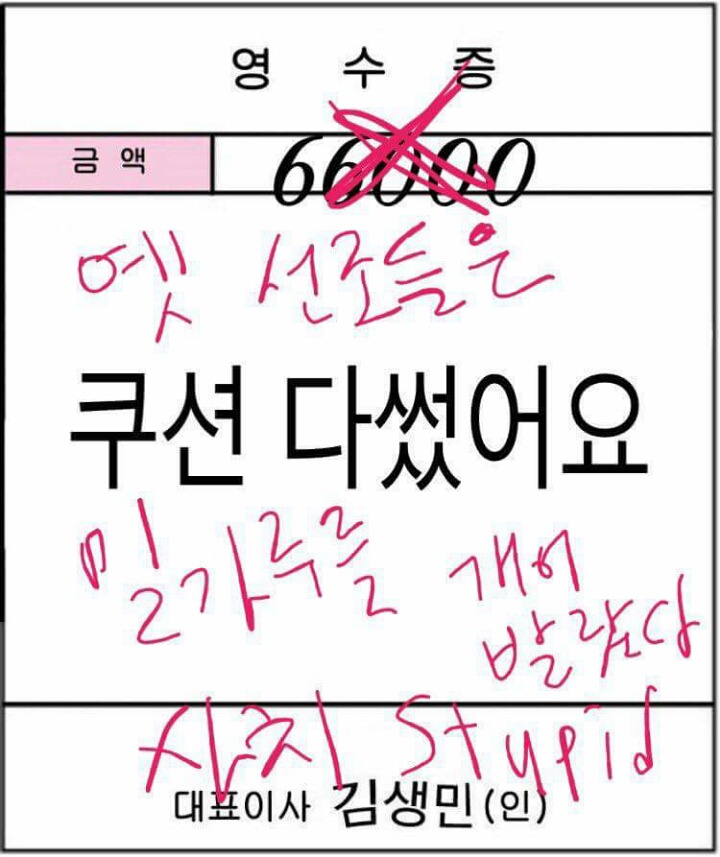 영 수 증
금 액 66000
옛 선조들은
쿠션 다썼어요
밀가루를 개어
발랐다
사치 Stupid
대표이사 김생민(인)